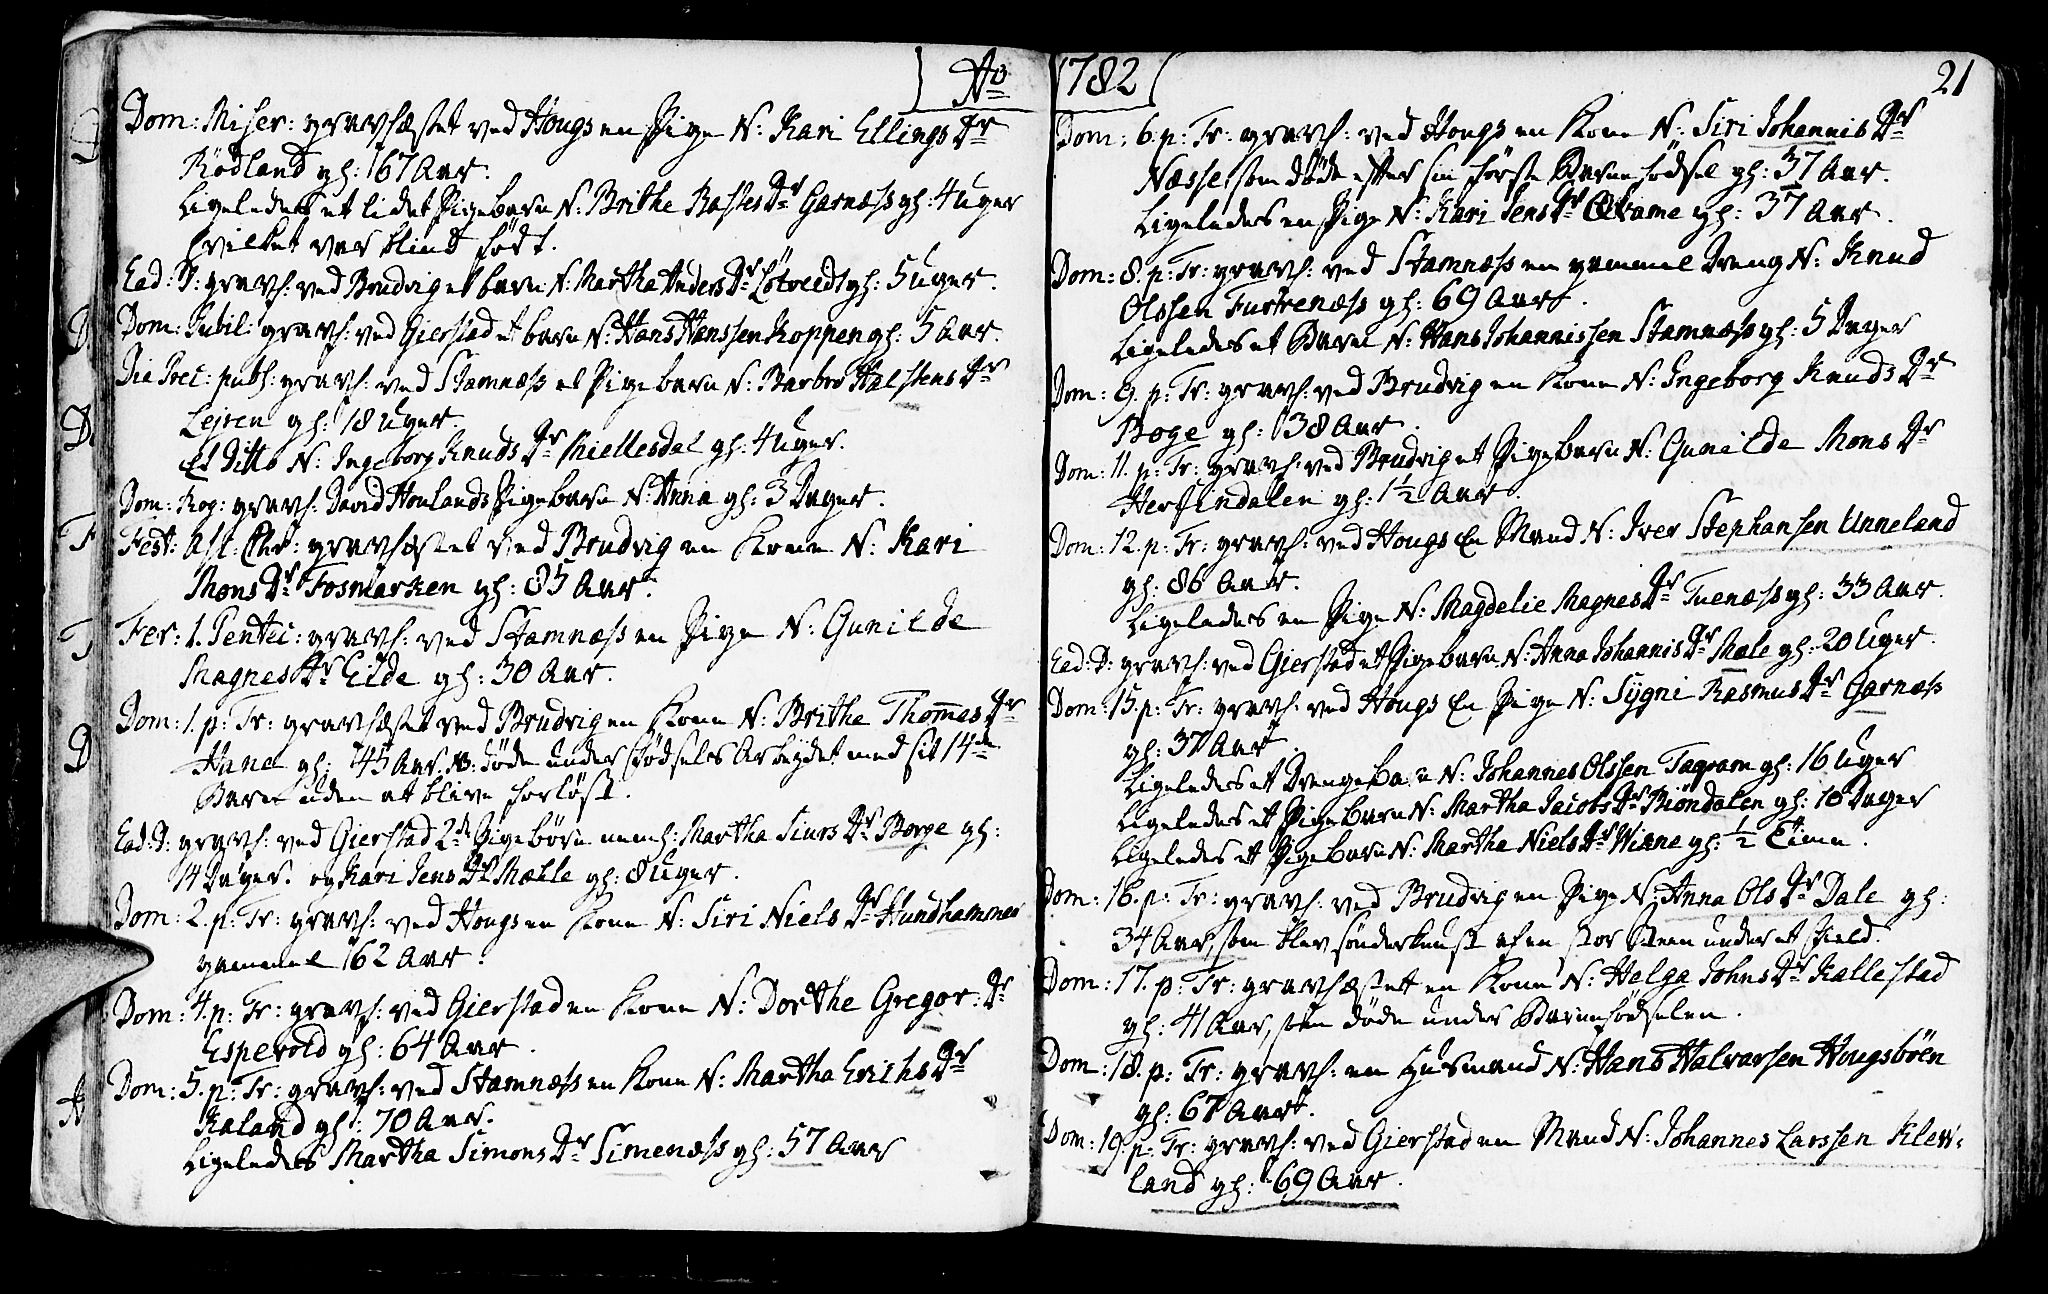 Ao
Dom: Miser: gravfæstet ved Hougs en Pige N: Kari Ellings Dr
Rödland gl: 67 Aar.
Ligeledes et lidet Pigebarn N: Brithe Rastes Dr Garnæss gl: 4 Uger
hvilket var blind födt.
Ead: D: gravf: ved Brudvig et barn N: Martha Anders Dr Lötveedt gl: 5 Uger.
Dom: Jubil: gravf: ved Gierstad et barn N: Hans Hanssen Koppen gl: 5 Aar.
Die Prec: publ: gravf: ved Stamnæss et Pigebarn N: Barbro Halstens Dr
Lejren gl: 18 Uger.
et Ditto N: Ingeborg Knuds Dr Skiellesdal gl: 4 Uger.
Dom: Rog: gravf: David Houlands Pigebarn N: Anna gl: 3 Dager.
Fest: Asc: Chr: gravfæstet ved Brudvig en Kone N: Kari
Mons Dr Fosmarken gl: 85 Aar.
Fer: 1. Pentec: gravf: ved Stamnæss en Pige N: Gunilde
Magnes Dr Eide gl: 30 Aar.
Dom: 1. p: Tr: gravfæstet ved Brudvig en Kone N: Brithe Thomas Dr
Hane gl: 45 Aar. NB: döde under födsels Arbeydet med sit 14de
Barn uden at blive forlöst.
Ead: D: gravf: ved Gierstad 2de Pigebörn neml: Martha Siurs Dr Borge gl:
14 Dager. og Kari Jens Dr Mælle gl: 8 Uger.
Dom: 2. p: Tr: gravf: ved Hougs en Kone N: Siri Niels Dr Hundhammer
gammel 62 Aar.
Dom: 4. p: Tr: gravf: ved Gierstad en Kone N: Dorthe Gregor: Dr
Esperold gl: 64 Aar.
Dom: 5. p: Tr: gravf: ved Stamnæss en Kone N: Martha Erichs Dr
Kaland gl: 70 Aar.
Ligeledes Martha Simons Dr Simenæss gl: 57 Aar
1782
21
Dom: 6. p: Tr: gravf: ved Hougs en Kone N: Siri Johannis Dr
Næsse, som döde efter sin förste Barnefödsel gl: 37 Aar.
Ligeledes en Pige N: Kari Jens Dr gl: 37 Aar.
Dom: 8. p: Tr: gravf: ved Stamnæss en gammel Dreng N: Knud
Olssen Furrenæss gl: 69 Aar.
Ligeledes et Barn N: Hans Johannissen Stamnæss gl: 5 Dager
Dom: 9. p: Tr: gravf: ved Brudvig en Kone N: Ingeborg Knuds Dr
Boge gl: 38 Aar.
Dom: 11. p: Tr: gravf: ved Brudvig et Pigebarn N: Gunilde Mons Dr
Herfindalen gl: 1½ Aar.
Dom: 12. p: Tr: gravf: ved Hougs en Mand N: Iver Stephansen Unneland
gl: 86 Aar.
Ligeledes en Pige N: Magdelie Magnes Dr Tuenæss gl: 33 Aar.
Ead: D: gravf: ved Gierstad et Pigebarn N: Anna Johannis Dr Male gl: 20 Uger.
Dom: 15. p: Tr: gravf: ved Hougs en Pige N: Sygni Rasmus Dr Garnæss
gl: 37 Aar.
Ligeledes et Drengebarn N: Johannes Olssen Tagvam gl: 16 Uger
Ligeledes et Pigebarn N: Martha Jacobs Dr Biöndalen gl: 10 Dager
Ligeledes et Pigebarn N: Martha Niels Dr Wiene gl: ½ Time.
Dom: 16. p: Tr: gravf: ved Brudvig en Pige N: Anna Ols Dr Dale gl:
34 Aar, som blev sönderknust af en stor Steen under et Field.
Dom: 17. p: Tr: gravfæstet en Kone N: Helga Johns Dr Kallestad
gl: 41 Aar, som döde under Barnefödselen.
Dom: 18. p: Tr: gravf: en Husmand N: Hans Halvarsen Hougsböen
gl: 67 Aar.
Dom: 19. p: Tr: gravf: ved Gierstad en Mand N: Johannes Larssen Klew:
land gl: 69 Aar.